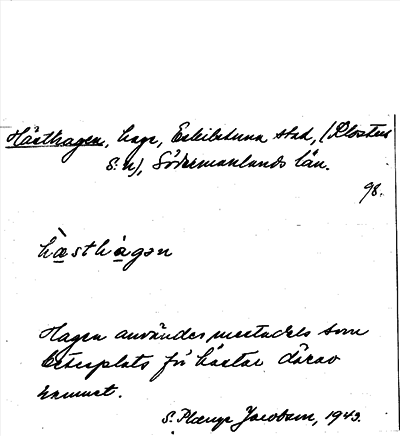 Hästhagen, hage, Eskilstuna stad, (Klosters
S:n), Södermanlands län.
98.
hàsthàgən
Hagen användes mestadels som
betesplats för hästar därav
namnet.
S. Jacobson, 1943.